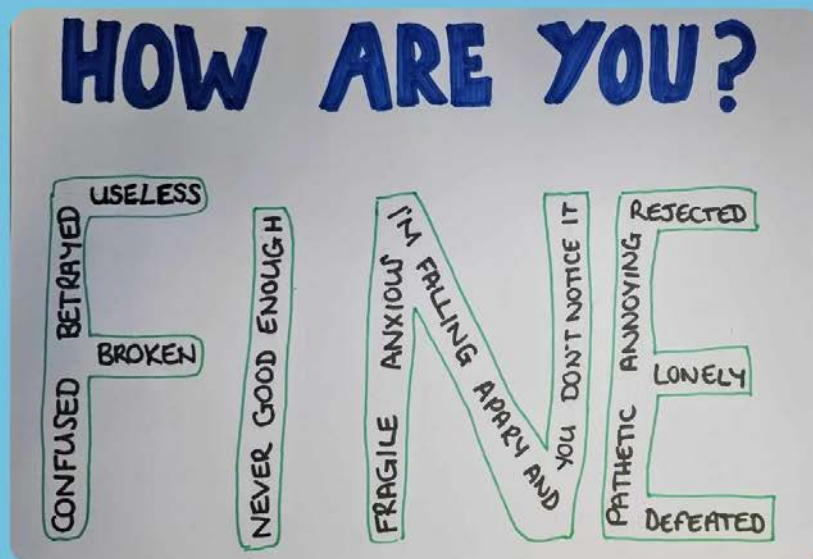 HOW ARE YOU?
USELESS
CONFUSED BETRAYED
BROKEN
NEVER GOOD ENOUGH
FRAGILE ANXIOUS
I'M FALLING APARY AND
YOU DON'T NOTICE IT
PATHETIC ANNOYING
REJECTED
LONELY
DEFEATED